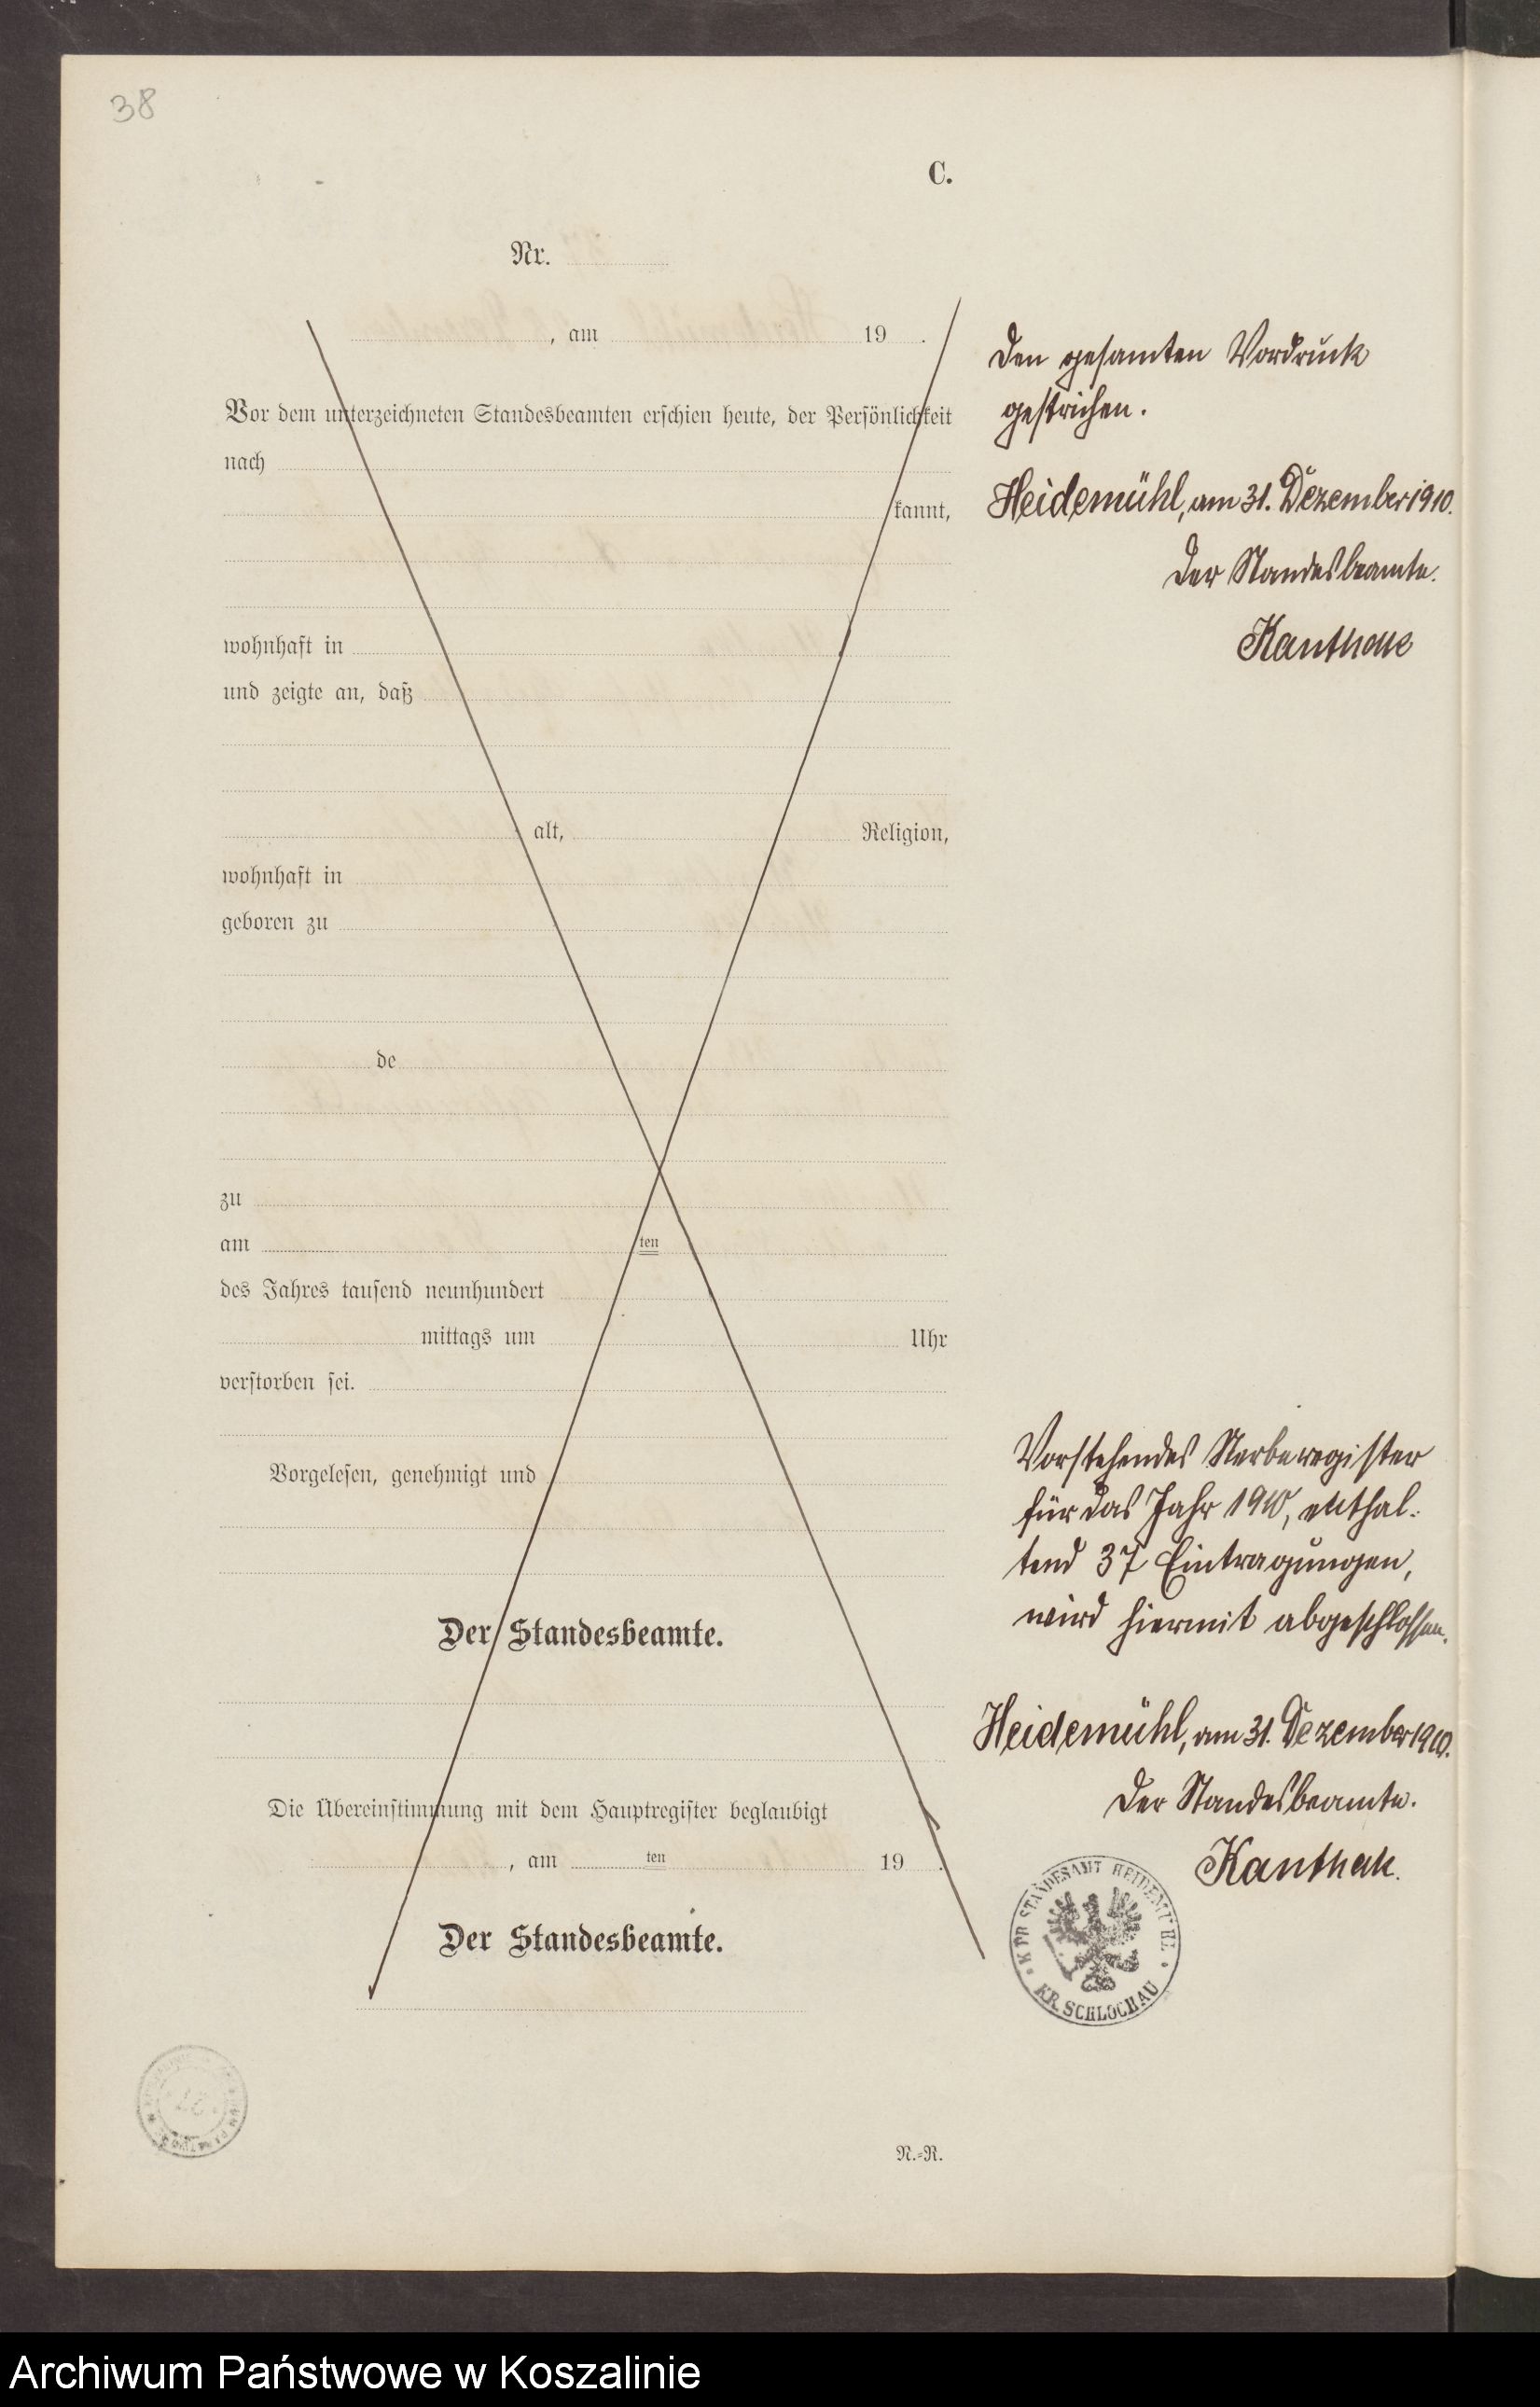 38
C.
Nr.
, am 19 .
Vor dem unterzeichneten Standesbeamten erschien heute, der Persönlichkeit
nach
kannt,
wohnhaft in
und zeigte an, daß
alt, Religion,
wohnhaft in
geboren zu
de
zu
am ten
des Jahres tausend neunhundert
mittags um Uhr
verstorben sei.
Vorgelesen, genehmigt und
Der Standesbeamte.
Die Übereinstimmung mit dem Hauptregister beglaubigt
, am ten 19 .
Der Standesbeamte.
N.=R.
Den gesamten Vordruck
gestrichen.
Heidemühl, am 31. Dezember 1910.
Der Standesbeamte.
Kanthak
Vorstehendes Sterberegister
für das Jahr 1910, enthal-
tend 37 Eintragungen,
wird hiermit abgeschlossen.
Heidemühl, am 31. Dezember 1910.
Der Standesbeamte.
Kanthak.
K. PR. STANDESAMT HEIDEMÜHL
KR. SCHLOCHAU
Archiwum Państwowe w Koszalinie